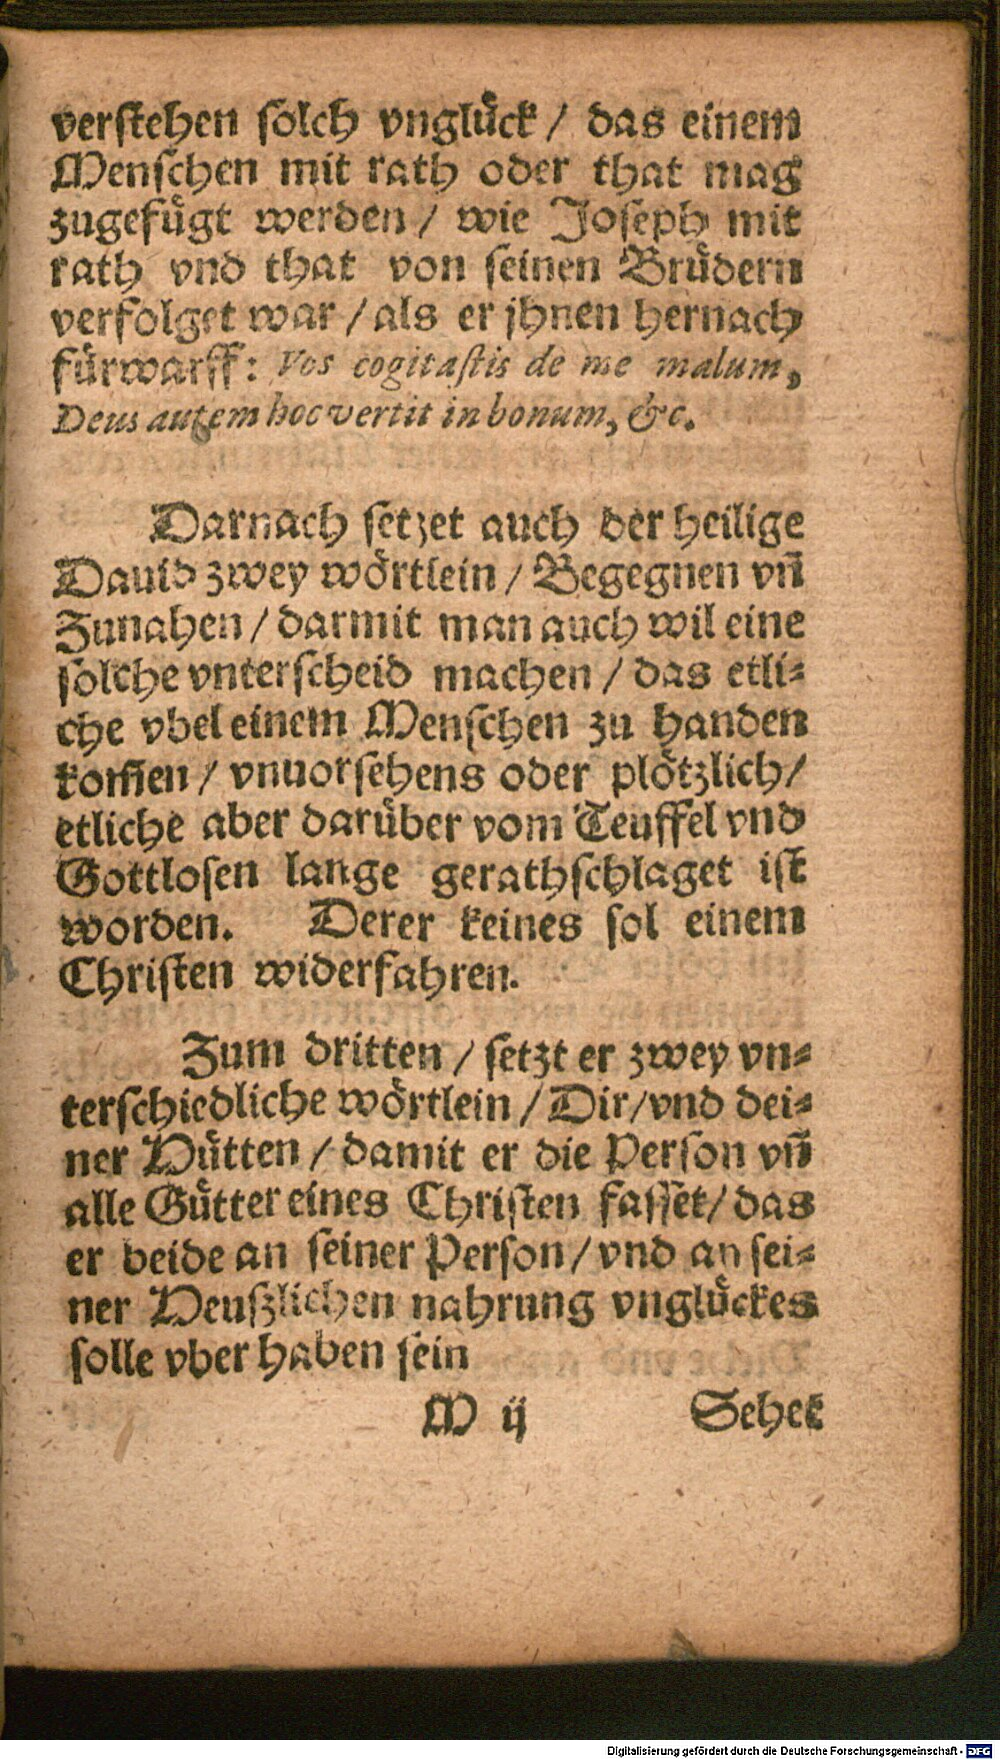 verstehen solch vnglück / das einem
Menschen mit rath oder that mag
zugefügt werden / wie Joseph mit
rath vnd that von seinen Brüdern
verfolget war / als er jhnen hernach
fürwarff: Vos cogitastis de me malum,
Deus autem hoc vertit in bonum, &c.
Darnach setzet auch der heilige
Dauid zwey wörtlein / Begegnen vñ
Zunahen / darmit man auch wil eine
solche vnterscheid machen / das etli-
che vbel einem Menschen zu handen
kom̃en / vnuorsehens oder plötzlich /
etliche aber darüber vom Teuffel vnd
Gottlosen lange gerathschlaget ist
worden. Derer keines sol einem
Christen widerfahren.
Zum dritten / setzt er zwey vn-
terschiedliche wörtlein / Dir / vnd dei-
ner Hütten / damit er die Person vñ
alle Gütter eines Christen fasset / das
er beide an seiner Person / vnd an sei-
ner Heuszlichen nahrung vnglückes
solle vber haben sein
M ij Sehet
Digitalisierung gefördert durch die Deutsche Forschungsgemeinschaft - DFG